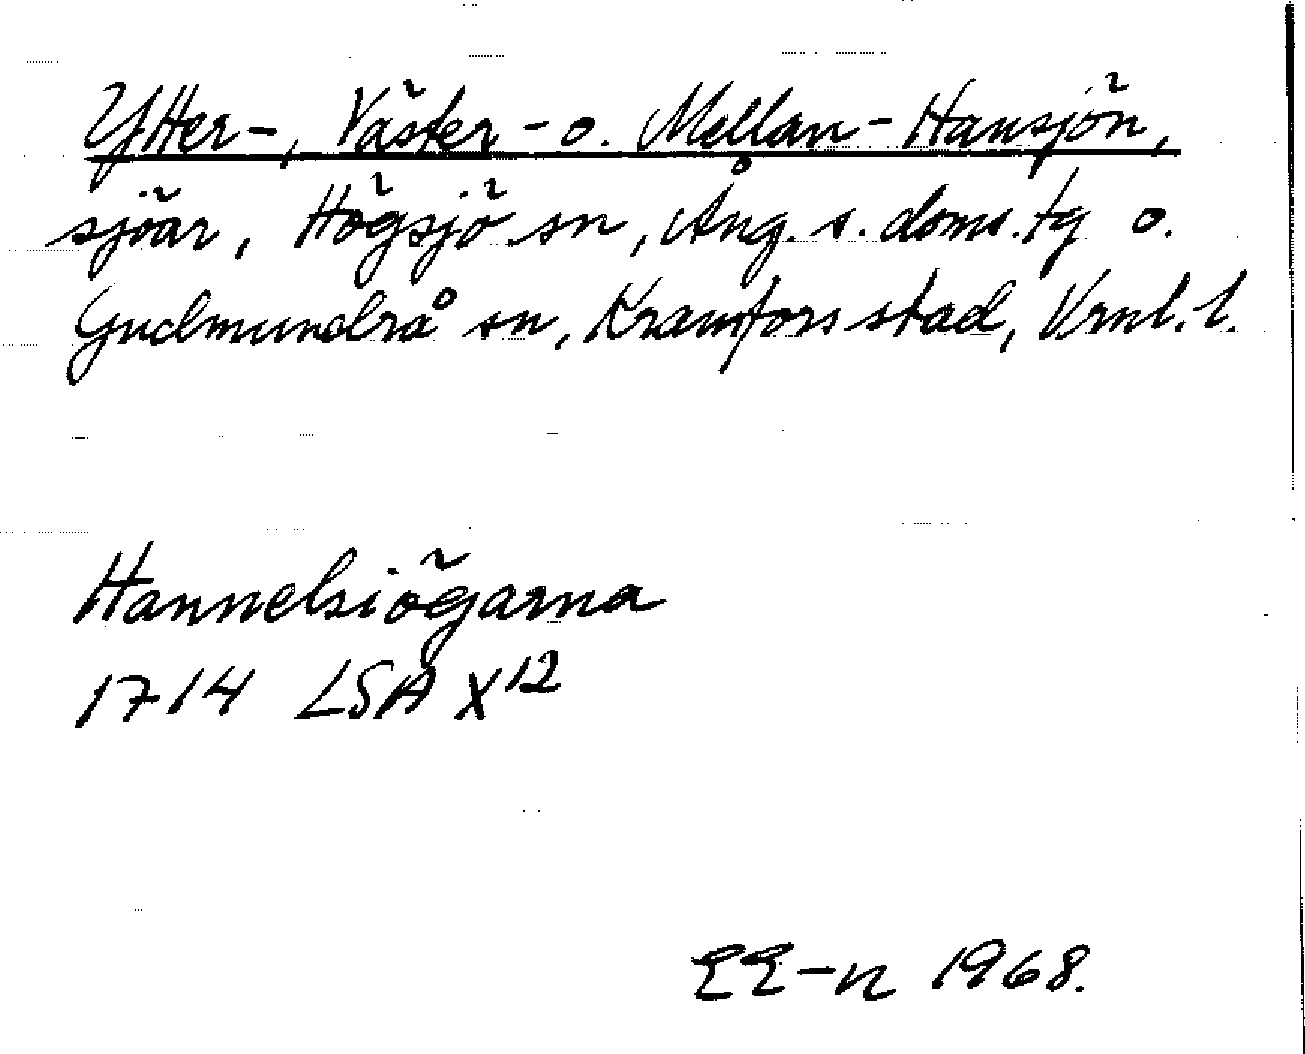 Ytter-, Väster- o. Mellan-Hansjön,
sjöar, Högsjö sn, Ång. s. doms. tg o.
Gudmundrå sn, Kramfors stad, Vrnl. l.
Hannelsiögarna
1714 LSA X12
EE-n 1968.